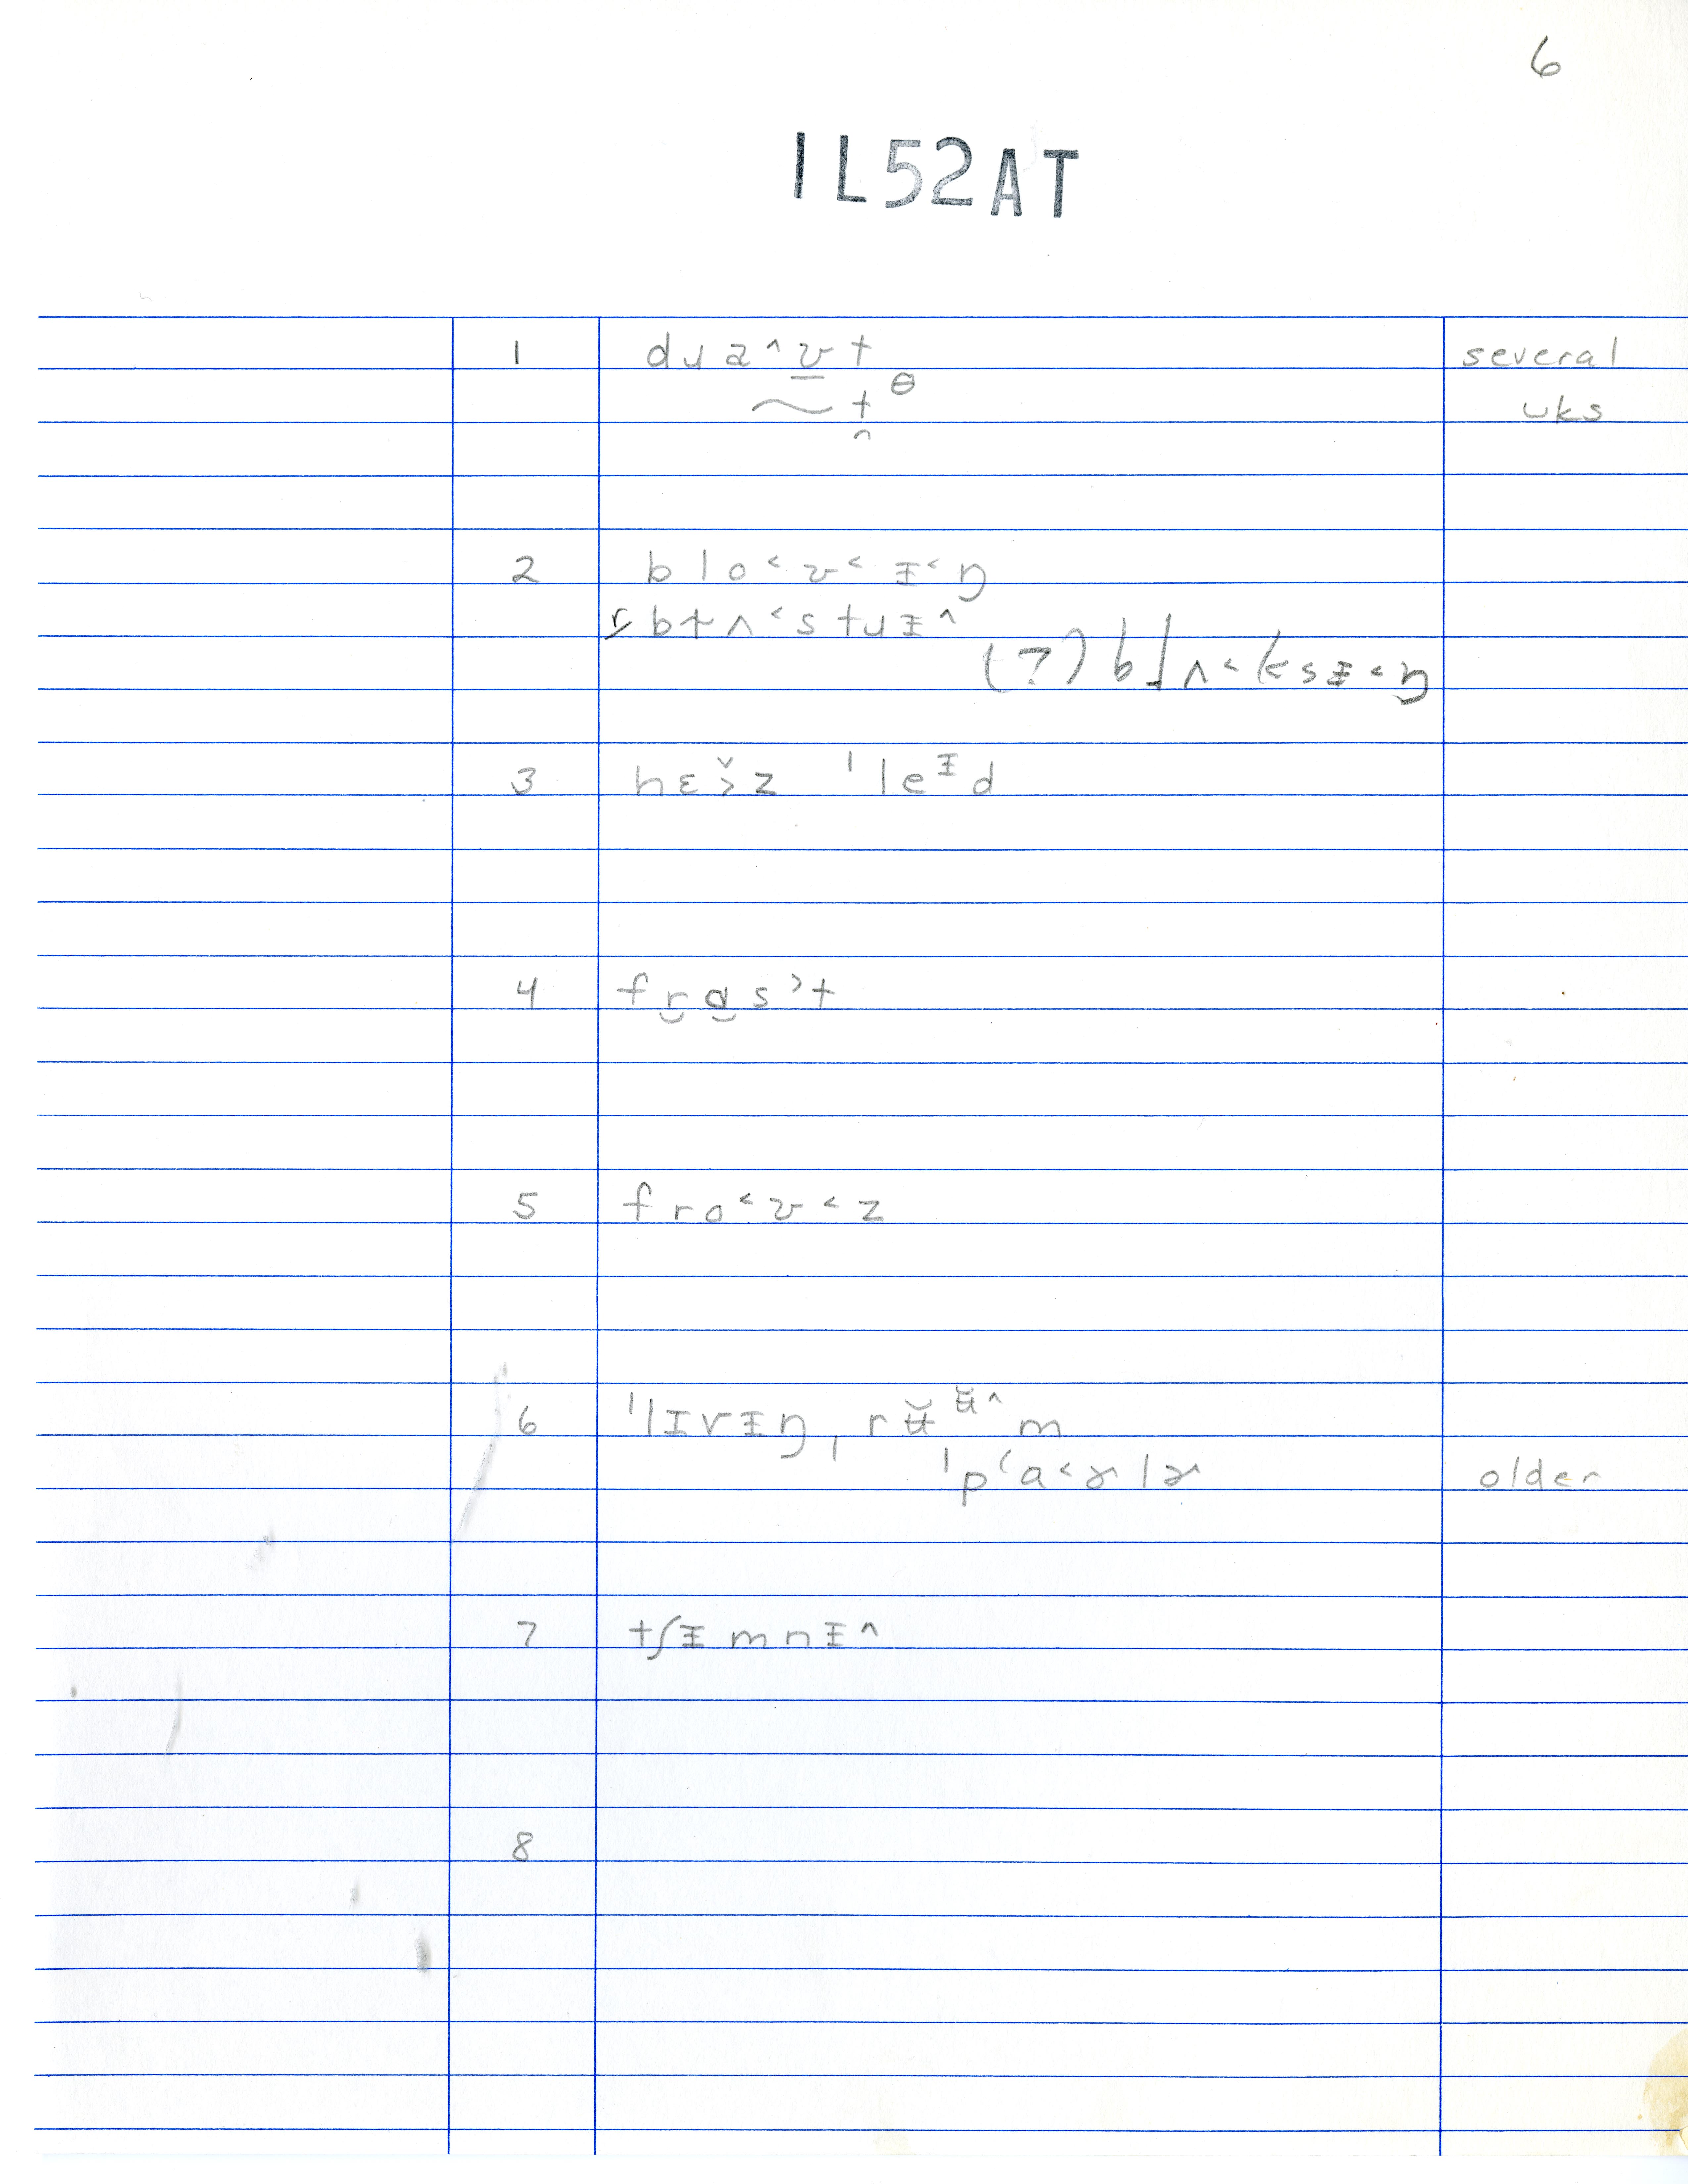 6
1L52AT
1 dɹa^ʊ̱t several
~t̯ᶿ uks
2 blo˂ʊ˂ɪ˂ŋ
r bɫʌ˂stɹɪ^
(?) bɫʌ˂k˂sɪ˂ŋ
3 hɛɚ̌z ˈleᶦd
4 fr̮ɑ̮s˃t
5 fro˂ʊ˂z
6 ˈlɪvɪŋ ˌrʉ̆ʉ̆^m
ˈp˂a˂ɚlɚ older
7 tʃɪmnɪ^
8